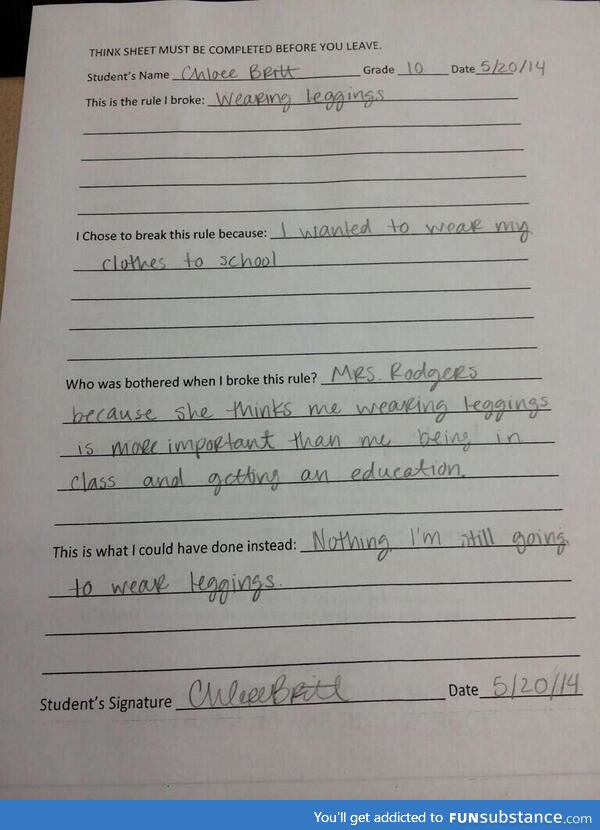 THINK SHEET MUST BE COMPLETED BEFORE YOU LEAVE.
Student's Name Chloee Britt Grade 10 Date 5/20/14
This is the rule I broke: Wearing leggings
I Chose to break this rule because: I wanted to wear my
clothes to school
Who was bothered when I broke this rule? Mrs. Rodgers
because she thinks me wearing leggings
is more important than me being in
class and getting an education.
This is what I could have done instead: Nothing, I'm still going
to wear leggings.
Student's Signature Chloee Britt Date 5/20/14
You'll get addicted to FUNsubstance.com